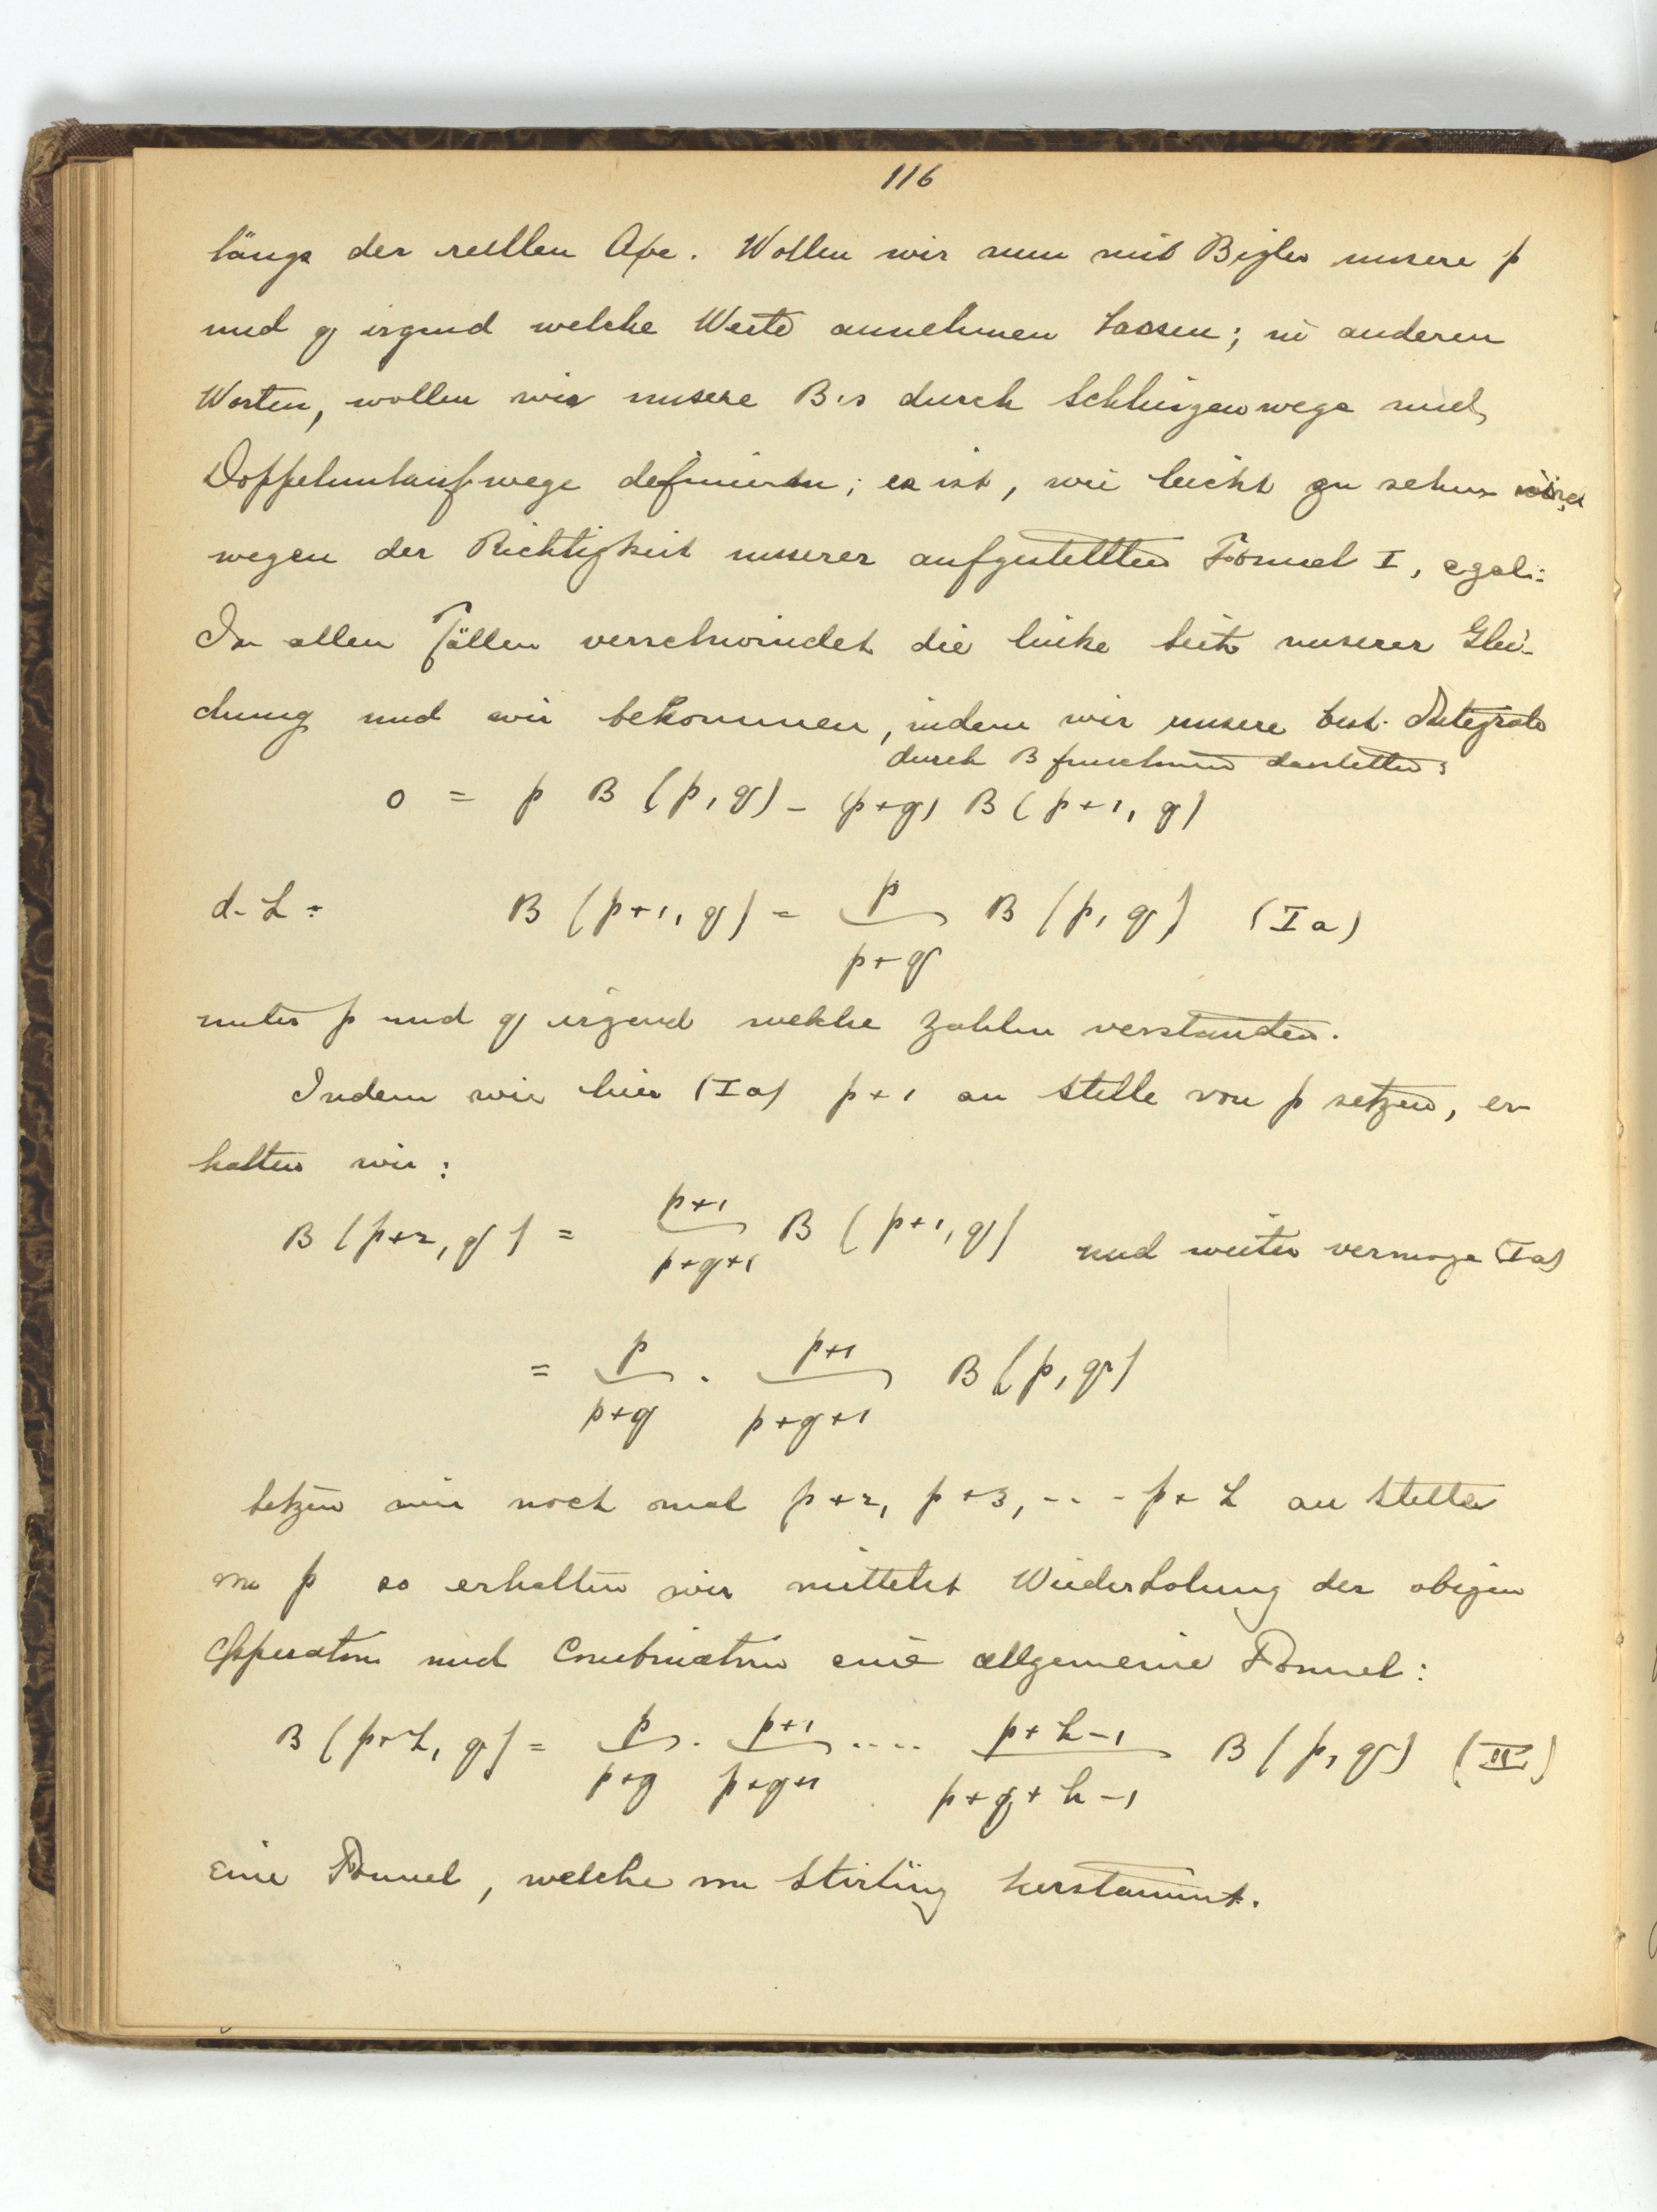 116
längs der reellen Axe. Wollen wir nun mit Bigler unsere p
und q irgend welche Werte annehmen lassen; in anderen
Worten, wollen wir unsere B's durch Schlingenwege und
Doppelumlaufwege definieren; es ist, wie leicht zu sehen
wegen der Richtigkeit unserer aufgestellten Formel I, egal:
In allen Fällen verschwindet die linke Seite unserer Glei-
chung und wir bekommen, indem wir unsere best. Integrale
durch B funktionen darstellen:
0 = p B (p, q) - (p+q) B (p+1, q)
d. h: B (p+1, q) = p/(p+q) B (p, q) (Ia)
unter p und q irgend welche Zahlen verstanden.
Indem wir hier (Ia) p+1 an Stelle von p setzen, er-
halten wir:
B (p+2, q) = (p+1)/(p+q+1) B (p+1, q) und weiter vermoge (Ia)
= p/(p+q) · (p+1)/(p+q+1) B (p, q)
Setzen wir noch mal p+2, p+3, ... p+h an Stelle
von p so erhalten wir mittelst Wiederholung der obigen
Opperation und Combination eine allgemeine Formel:
B (p+h, q) = p/(p+q) · (p+1)/(p+q+1) .... (p+h-1)/(p+q+h-1) B (p, q) (II)
eine Formel, welche von Stirling herstammt.